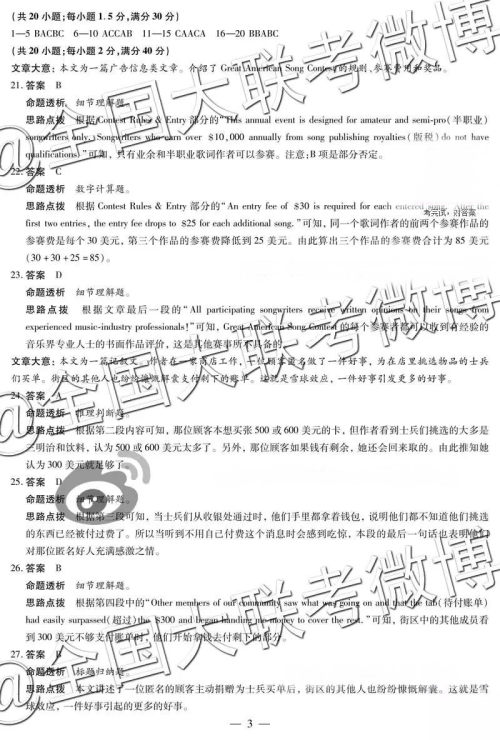 (共 20 小题;每小题 1. 5 分,满分 30 分)
1—5 BACBC 6—10 ACCAB 11—15 CAACA 16—20 BBABC
(共 20 小题;每小题 2 分,满分 40 分)
文章大意: 本文为一篇广告信息类文章。介绍了 Great American Song Contest 的规则、参赛费用和奖品。
21. 答案 B
命题透析 细节理解题。
思路点拨 根据 Contest Rules & Entry 部分的“This annual event is designed for amateur and semi-pro(半职业)
songwriters only. Songwriters who earn over $10,000 annually from song publishing royalties (版税) do not have
qualifications”可知,只有业余和半职业歌词作者可以参赛。注意:B 项是部分否定。
22. 答案 C
命题透析 数字计算题。
思路点拨 根据 Contest Rules & Entry 部分的“An entry fee of $30 is required for each entered song. After the
考完试,对答案
first two entries, the entry fee drops to $25 for each additional song.”可知,同一个歌词作者的前两个参赛作品的
参赛费是每个 30 美元,第三个作品的参赛费降低到 25 美元。由此算出三个作品的参赛费合计为 85 美元
(30 + 30 + 25 = 85)。
23. 答案 D
命题透析 细节理解题。
思路点拨 根据文章最后一段的“All participating songwriters receive written opinions on their songs from
experienced music-industry professionals!”可知, Great American Song Contest 的每个参赛者都可以收到有经验的
音乐界专业人士的书面作品评价,这是其他赛事所不具备的。
文章大意: 本文为一篇记叙文。作者在一家商店工作,一位顾客匿名做了一件好事,为在店里挑选物品的士兵
们买单。街区的其他人也纷纷慷慨解囊支付剩下的账单。这就是雪球效应,一件好事引发更多的好事。
24. 答案 A
命题透析 推理判断题。
思路点拨 根据第二段内容可知,那位顾客本想买张 500 或 600 美元的卡,但作者看到士兵们挑选的大多是
三明治和饮料,认为 500 或 600 美元太多了。另外,那位顾客如果钱有剩余,她还会回来取的。由此推知她
认为 300 美元就足够了。
25. 答案 D
命题透析 细节理解题。
思路点拨 根据第三段可知,当士兵们从收银处通过时,他们手里都拿着钱包,说明他们都不知道他们挑选
的东西已经被付过费了。所以当听到不用自己付费这个消息时会感到吃惊,本段的最后一句话也表明他们
对那位匿名好人充满感激之情。
26. 答案 B
命题透析 细节理解题。
思路点拨 根据第四段中的“Other members of our community saw what was going on and that the tab(待付账单)
had easily surpassed(超过)the $300 and began handing me money to cover the rest.”可知,街区中的其他成员看
到 300 美元不够支付账单时,他们开始拿钱去付剩下的部分。
27. 答案 B
命题透析 标题归纳题。
思路点拨 本文讲述了一位匿名的顾客主动捐赠为士兵买单后,街区的其他人也纷纷慷慨解囊。这就是雪
球效应,一件好事引起的更多的好事。
— 3 —
@全国大联考微博
@全国大联考微博
@全国大联考微博